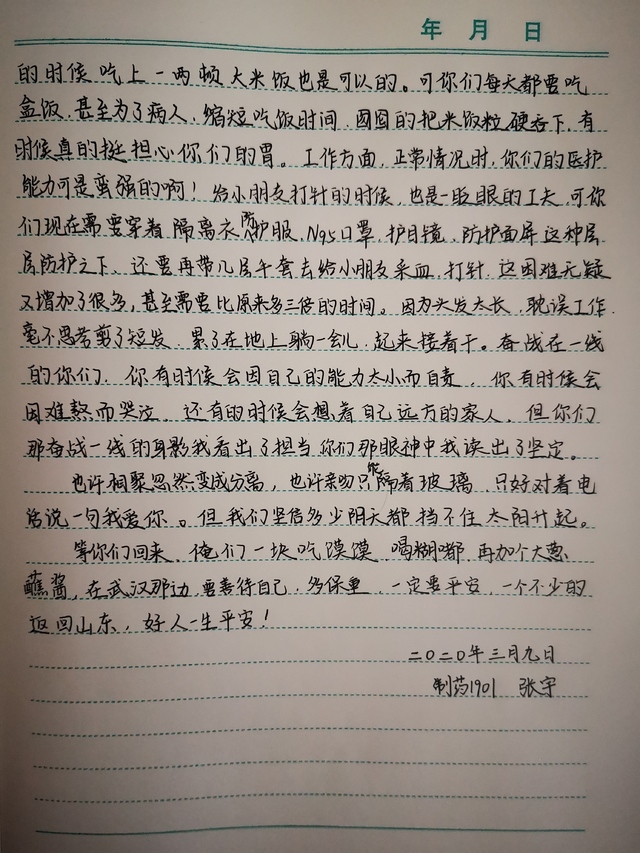 年 月 日
的时候吃上一两顿大米饭也是可以的。可你们每天都要吃
盒饭,甚至为了病人,缩短吃饭时间,囫囵的把米饭粒硬吞下,有
时候真的挺担心你们的胃。工作方面,正常情况时,你们的医护
能力可是蛮强的啊!给小朋友打针的时候,也是一眨眼的工夫,可你
们现在需要穿着隔离衣,防护服,N95口罩,护目镜,防护面屏这种层
层防护之下,还要再带几层手套去给小朋友采血,打针,这困难无疑
又增加了很多,甚至需要比原来多三倍的时间。因为头发太长,耽误工作,
毫不思考剪了短发,累了在地上躺一会儿,起来接着干。奋战在一线
的你们,你有时候会因自己的能力太小而自责,你有时候会
因难熬而哭泣,还有的时候会想着自己远方的家人,但你们
那奋战一线的身影我看出了担当,你们那眼神中我读出了坚定。
也许相聚忽然变成分离,也许亲吻只能隔着玻璃,只好对着电
话说一句我爱你。但我们坚信多少阴天都挡不住太阳升起。
等你们回来,俺们一块吃馍馍,喝糊嘟,再加个大葱
蘸酱,在武汉那边,要善待自己,多保重,一定要平安,一个不少的
返回山东,好人一生平安!
二〇二〇年三月九日
制药1901 张宇